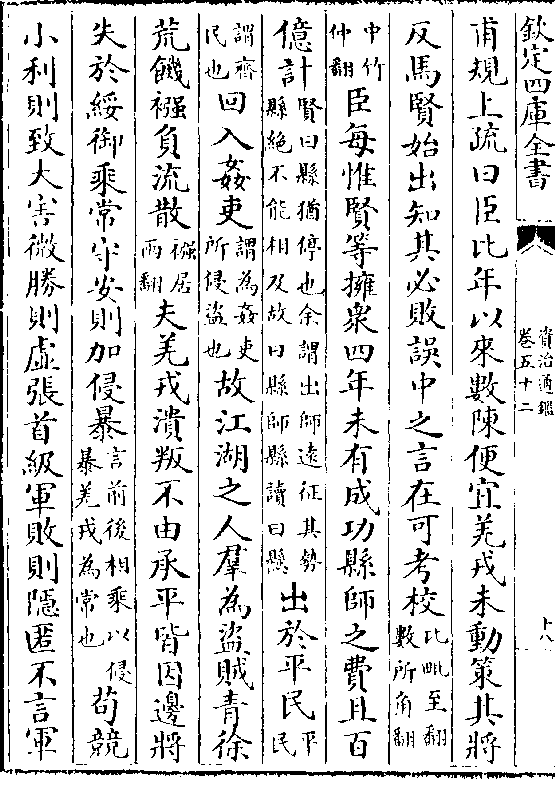 欽定四庫全書
資治通鑑
卷五十二
十八
甫規上疏曰臣比年以來數陳便宜羌戎未動策其將
反馬賢始出知其必敗誤中之言在可考校比毗至翻數所角翻
中竹仲翻臣每惟賢等擁衆四年未有成功縣師之費且百
億計賢曰縣猶停也余謂出師遠征其勢縣絶不能相及故曰縣師縣讀曰懸出於平民平民
謂齊民也回入姦吏謂為姦吏所侵盗也故江湖之人羣為盜賊青徐
荒饑襁負流散襁居兩翻夫羌戎潰叛不由承平皆因邊將
失於綏御乘常守安則加侵暴言前後相乘以侵暴羌戎為常也苟競
小利則致大害微勝則虛張首級軍敗則隱匿不言軍